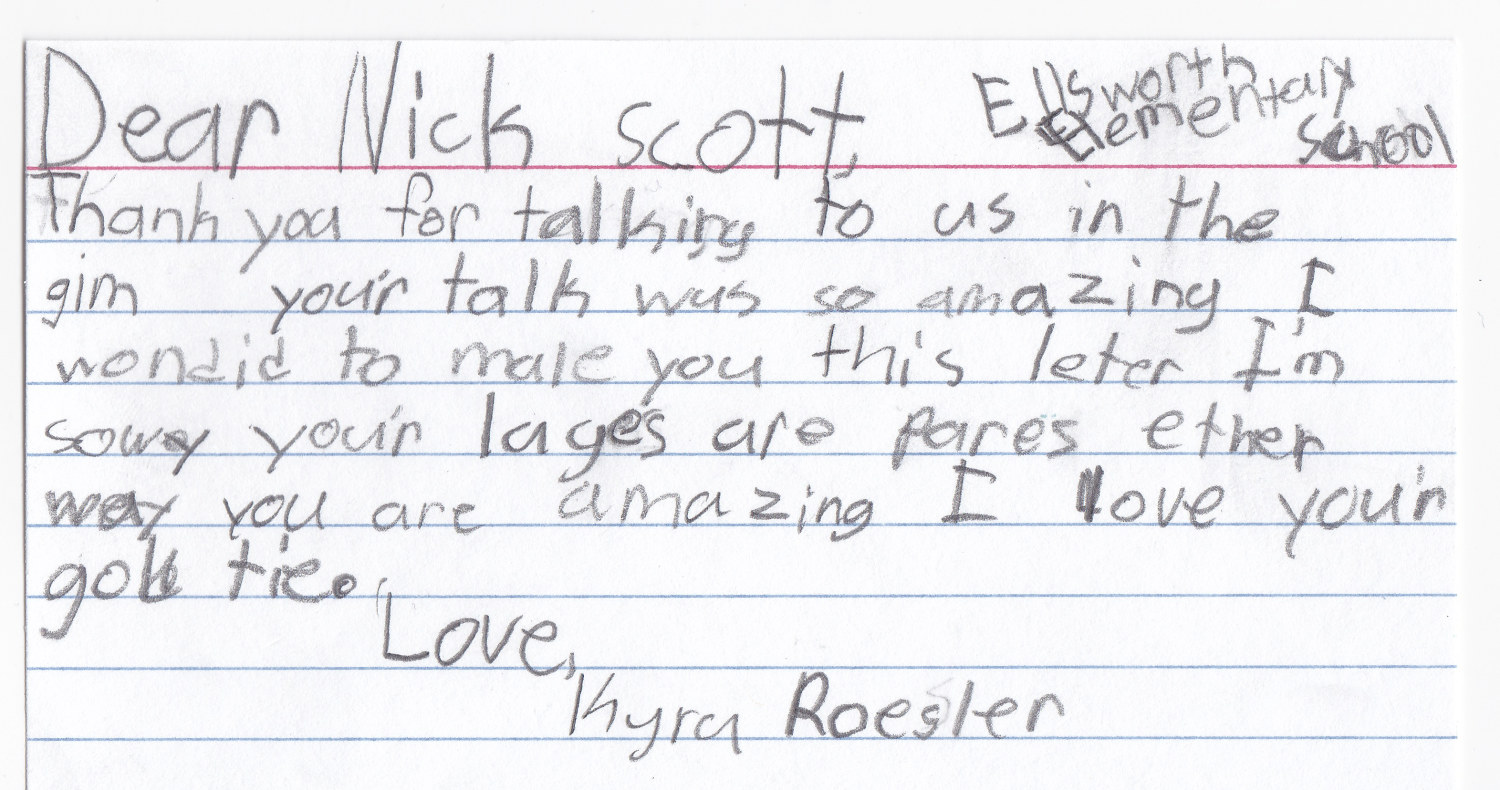 Dear Nick scott,
Ellsworth
Elementary
School
Thank you for talking to us in the
gim your talk was so amazing I
wondid to male you this leter I'm
sowry you'r lages are pares ether
way you are amazing I love you'r
gold tie.
Love,
Kyra Roesler